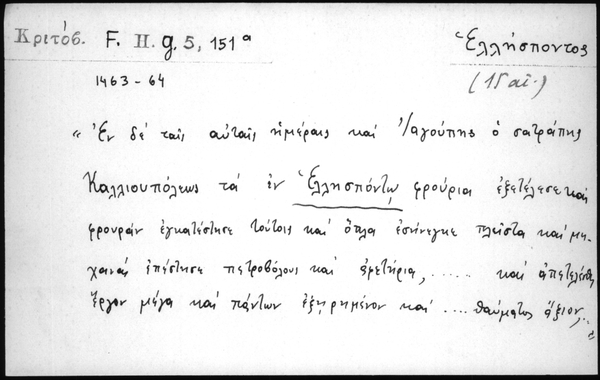 Κριτόβ. F. H. g. 5, 151ᵃ
Ἑλλήσποντος
1463-64
(15 αἰ.)
"Ἐν δέ ταῖς αὐταῖς ἡμέραις καί Ἰαγούπης ὁ σατράπης
Καλλιουπόλεως τά ἐν Ἑλλησπόντῳ φρούρια ἐξετέλεσε καί
φρουράν ἐγκατέστησε τούτοις καί ὅπλα ἐσήνεγκε πλεῖστα καί μη-
χανάς ἐπέστησε πετροβόλους καί ἀφετήρια, ..... καί ἀπετελέσθη
ἔργον μέγα καί πάντων ἐξῃρημένον καί .... θαύματος ἄξιον,.."